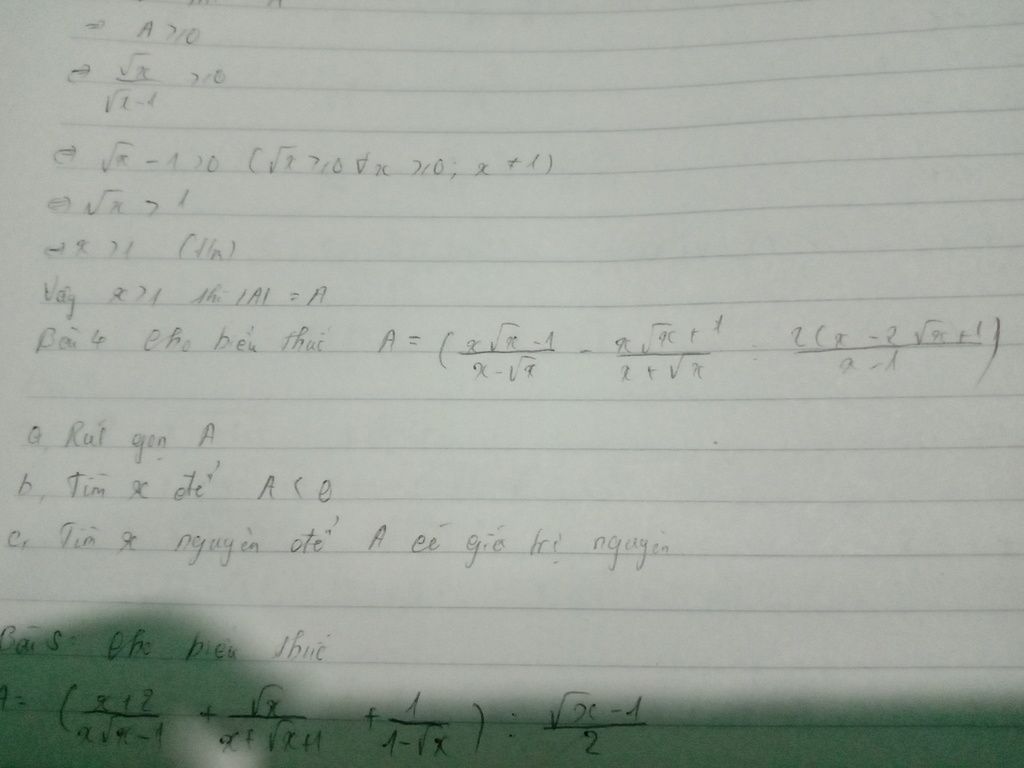 ⇒ A ≥ 0
⇒ √x / (√x - 1) ≥ 0
⇔ √x - 1 > 0 (√x ≥ 0 ∀x ≥ 0; x ≠ 1)
⇔ √x > 1
⇒ x > 1 (t/m)
Vậy x > 1 thì |A| = A
Bài 4 Cho biểu thức A = ( (x√x - 1) / (x - √x) - (x√x + 1) / (x + √x) : 2(x - 2√x + 1) / (x - 1) )
a, Rút gọn A
b, Tìm x để A < 0
c, Tìm x nguyên để A có giá trị nguyên
Bài 5: Cho biểu thức
A = ( (x + 2) / (x√x - 1) + √x / (x + √x + 1) + 1 / (1 - √x) ) : (√x - 1) / 2